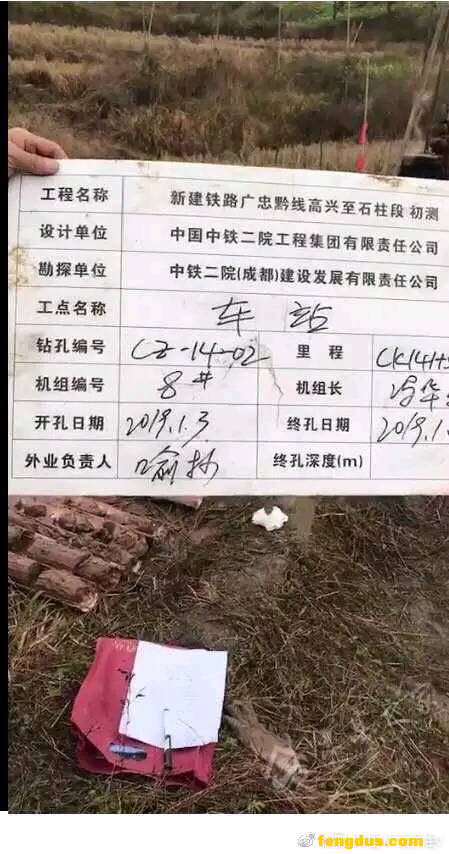 工程名称 新建铁路广忠黔线高兴至石柱段 初测
设计单位 中国中铁二院工程集团有限责任公司
勘探单位 中铁二院(成都)建设发展有限责任公司
工点名称 车站
钻孔编号 CZ-14-02 里程 CK141+
机组编号 8# 机组长
开孔日期 2019.1.3 终孔日期 2019.1.
外业负责人 喻 终孔深度(m)
fengdus.com